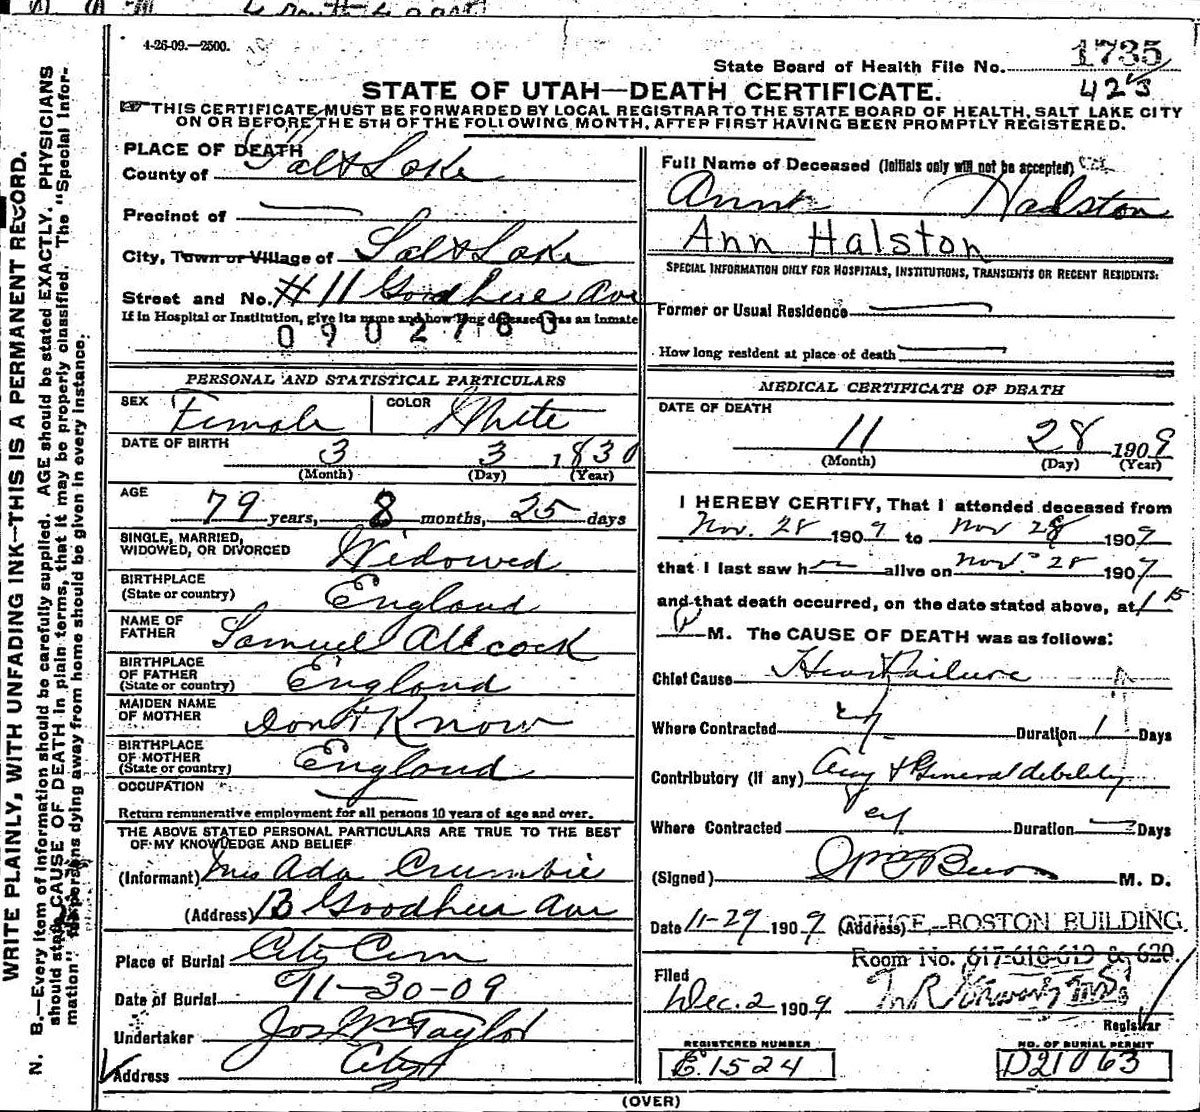 4-26-09.—2500.
State Board of Health File No. 1735
423
STATE OF UTAH—DEATH CERTIFICATE.
THIS CERTIFICATE MUST BE FORWARDED BY LOCAL REGISTRAR TO THE STATE BOARD OF HEALTH, SALT LAKE CITY
ON OR BEFORE THE 5TH OF THE FOLLOWING MONTH, AFTER FIRST HAVING BEEN PROMPTLY REGISTERED.
WRITE PLAINLY, WITH UNFADING INK—THIS IS A PERMANENT RECORD.
N. B.—Every item of information should be carefully supplied. AGE should be stated EXACTLY. PHYSICIANS
should state CAUSE OF DEATH in plain terms, that it may be properly classified. The "Special Infor-
mation" for persons dying away from home should be given in every instance.
PLACE OF DEATH
County of Salt Lake
Precinct of
City, Town or Village of Salt Lake
Street and No. #11 Goodhue Ave
If in Hospital or Institution, give its name and how long deceased was an inmate
0902780
PERSONAL AND STATISTICAL PARTICULARS
SEX Female COLOR White
DATE OF BIRTH 3 3 1830
(Month) (Day) (Year)
AGE
79 years, 8 months, 25 days
SINGLE, MARRIED,
WIDOWED, OR DIVORCED Widowed
BIRTHPLACE
(State or country) England
NAME OF
FATHER Samuel Allcock
BIRTHPLACE
OF FATHER
(State or country) England
MAIDEN NAME
OF MOTHER Dont Know
BIRTHPLACE
OF MOTHER
(State or country) England
OCCUPATION
Return remunerative employment for all persons 10 years of age and over.
THE ABOVE STATED PERSONAL PARTICULARS ARE TRUE TO THE BEST
OF MY KNOWLEDGE AND BELIEF
(Informant) Mrs Ada Crumbie
(Address) 13 Goodhue Ave
Place of Burial City Cem
Date of Burial 11-30-09
Undertaker Jos Wm Taylor
Address City
Full Name of Deceased (Initials only will not be accepted)
Ann Halston
Ann Halston
SPECIAL INFORMATION ONLY FOR HOSPITALS, INSTITUTIONS, TRANSIENTS OR RECENT RESIDENTS:
Former or Usual Residence
How long resident at place of death
MEDICAL CERTIFICATE OF DEATH
DATE OF DEATH
11 28 1909
(Month) (Day) (Year)
I HEREBY CERTIFY, That I attended deceased from
Nov. 28 1909 to Nov 28 1909
that I last saw h alive on Nov. 28 1909
and that death occurred, on the date stated above, at 1 15
P M. The CAUSE OF DEATH was as follows:
Chief Cause Heart Failure
Where Contracted Duration 1 Days
Contributory (if any) Age & General debility
Where Contracted Duration Days
(Signed) M. D.
Date 11-29 1909 (Address) OFFICE, BOSTON BUILDING
Room No. 617-618-619 & 620.
Filed
Dec. 2 1909
Registrar
REGISTERED NUMBER
E1524
NO. OF BURIAL PERMIT
D21063
(OVER)